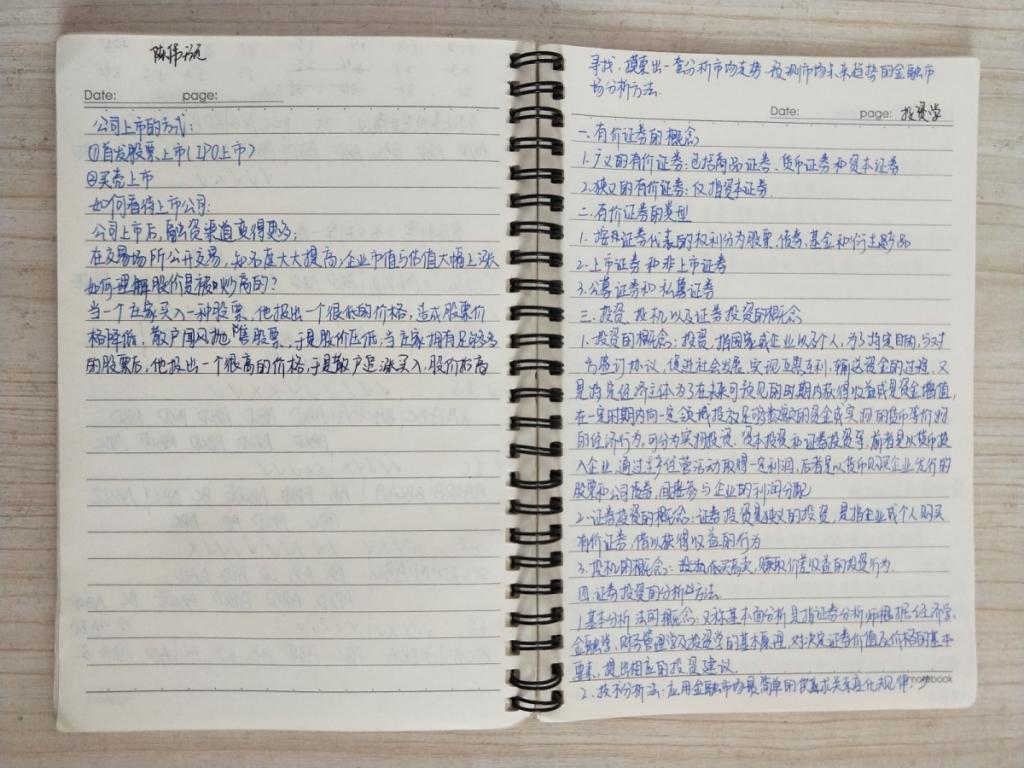 陈伟远
Date: page:
公司上市的方式:
①首发股票上市(IPO上市)
②买壳上市
如何看待上市公司:
公司上市后,融资渠道变得更多;
在交易场所公开交易,知名度大大提高;企业市值与估值大幅上涨
如何理解股价是被炒高的?
当一个庄家买入一种股票,他报出一个很低的价格,造成股票价
格降低,散户闻风抛售股票,于是股价压低,当庄家拥有足够多
的股票后,他报出一个很高的价格,于是散户追涨买入,股价抬高
寻找、摸索出一套分析市场走势、预测市场未来趋势的金融市
场分析方法.
Date: page: 投资学
一.有价证券的概念
1.广义的有价证券:包括商品证券、货币证券和资本证券
2.狭义的有价证券:仅指资本证券.
二.有价证券的类型
1.按照证券代表的权利分为股票、债券、基金和衍生产品
2.上市证券和非上市证券
3.公募证券和私募证券
三.投资、投机以及证券投资的概念
1.投资的概念:投资,指国家或企业以及个人,为了特定目的,与对
方签订协议,促进社会发展,实现互惠互利,输送资金的过程,又
是特定经济主体为了在未来可预见的时期内获得收益或是资金增值,
在一定时期内向一定领域投放足够数额的资金或实物的货币等价物
的经济行为,可分为实物投资、资本投资和证券投资等,前者是以货币投
入企业,通过生产经营活动取得一定利润,后者是以货币购买企业发行的
股票和公司债券,间接参与企业的利润分配
2.证券投资的概念:证券投资是狭义的投资,是指企业或个人购买
有价证券,借以获得收益的行为
3.投机的概念:投机低买高卖,赚取价差收益的投资行为
四.证券投资的分析方法
1.基本分析法的概念:又称基本面分析是指证券分析师根据经济学、
金融学、财务管理学及投资学的基本原理,对决定证券价值及价格的基本
要素,提出相应的投资建议.
notebook
2.技术分析法:应用金融市场最简单的供求关系变化规律,